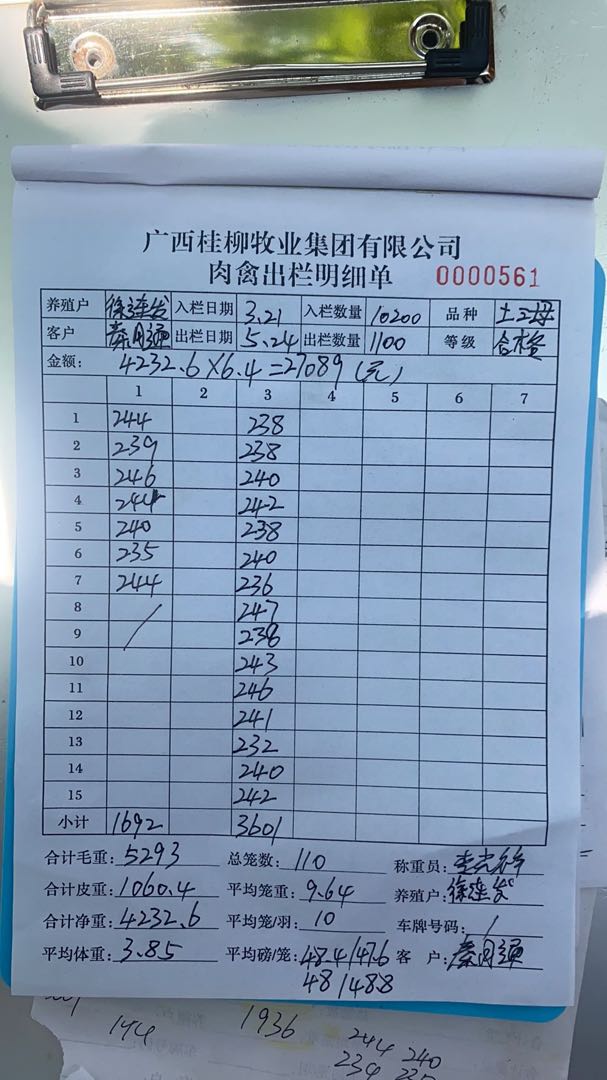 广西桂柳牧业集团有限公司
肉禽出栏明细单 0000561
养殖户 徐连发 入栏日期 3.21 入栏数量 10200 品种 土二母
客户 出栏日期 5.24 出栏数量 1100 等级 合格
金额: 4232.6×6.4=27089(元)
1 2 3 4 5 6 7
1 244 238
2 239 238
3 246 240
4 244 242
5 240 238
6 235 240
7 244 236
8 / 247
9 238
10 243
11 246
12 241
13 232
14 240
15 242
小计 1692 3601
合计毛重: 5293 总笼数: 110 称重员:
合计皮重: 1060.4 平均笼重: 9.64 养殖户: 徐连发
合计净重: 4232.6 平均笼/羽: 10 车牌号码: /
平均体重: 3.85 平均磅/笼: 48.4/47.6 客户:
48/48.8
144 1936 244 240
234